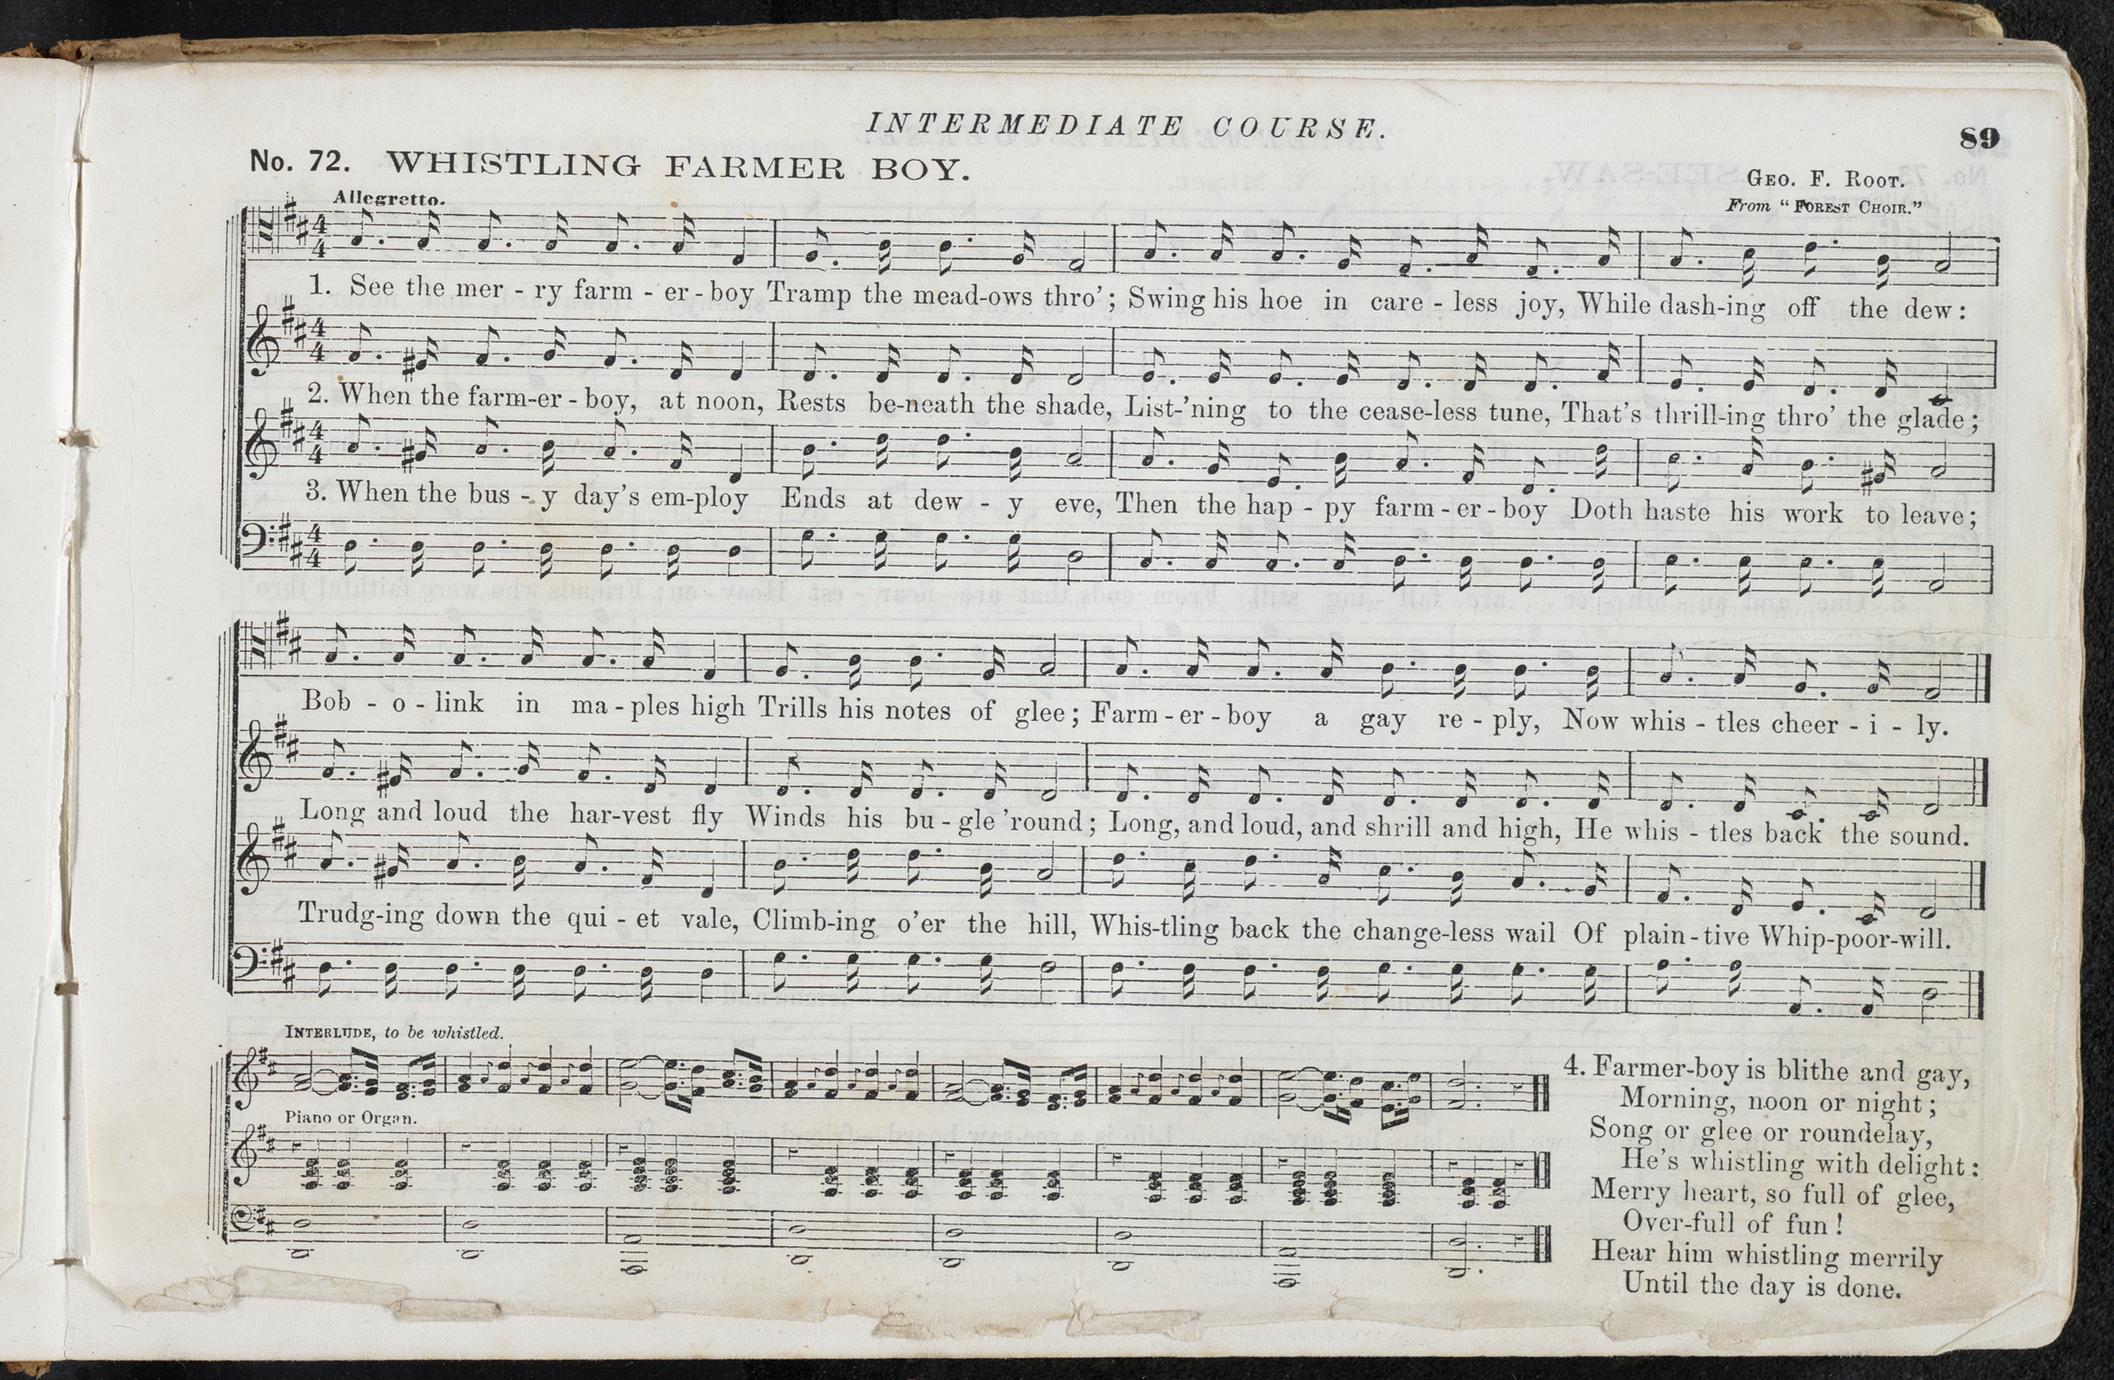 INTERMEDIATE COURSE.
89
No. 72. WHISTLING FARMER BOY.
GEO. F. ROOT.
Allegretto.
From "FOREST CHOIR."
4
4
1. See the mer - ry farm - er - boy Tramp the mead-ows thro'; Swing his hoe in care - less joy, While dash-ing off the dew:
4
4
2. When the farm-er - boy, at noon, Rests be-neath the shade, List-'ning to the cease-less tune, That's thrill-ing thro' the glade;
4
4
3. When the bus - y day's em-ploy Ends at dew - y eve, Then the hap - py farm - er - boy Doth haste his work to leave;
4
4
Bob - o - link in ma - ples high Trills his notes of glee; Farm - er - boy a gay re - ply, Now whis - tles cheer - i - ly.
Long and loud the har-vest fly Winds his bu - gle 'round; Long, and loud, and shrill and high, He whis - tles back the sound.
Trudg-ing down the qui - et vale, Climb-ing o'er the hill, Whis-tling back the change-less wail Of plain - tive Whip-poor-will.
INTERLUDE, to be whistled.
Piano or Organ.
4. Farmer-boy is blithe and gay,
Morning, noon or night;
Song or glee or roundelay,
He's whistling with delight:
Merry heart, so full of glee,
Over-full of fun!
Hear him whistling merrily
Until the day is done.